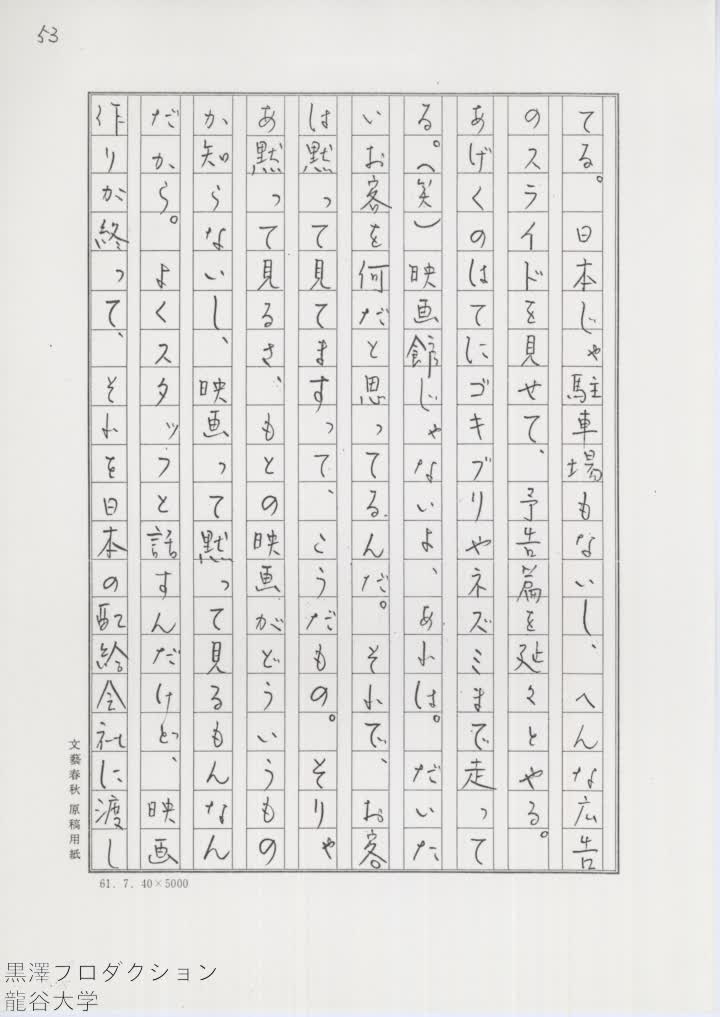 53
てる。日本じゃ駐車場もないし、へんな広告
のスライドを見せて、予告篇を延々とやる。
あげくのはてにゴキブリやネズミまで走って
る。(笑)映画館じゃないよ、あれは。だいた
いお客を何だと思ってるんだ。それで、お客
は黙って見てますって、こうだもの。そりゃ
あ黙って見るさ、もとの映画がどういうもの
か知らないし、映画って黙って見るもんなん
だから。よくスタッフと話すんだけど、映画
作りが終って、それを日本の配給会社に渡し
文藝春秋 原稿用紙
61. 7. 40×5000
黒澤プロダクション
龍谷大学